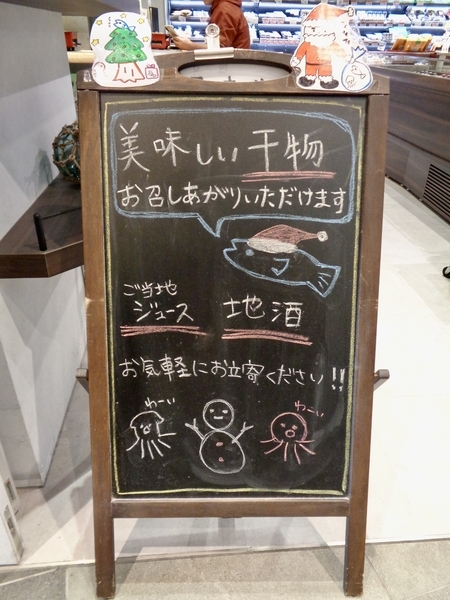 美味しい干物
お召しあがりいただけます
ご当地
ジュース
地酒
お気軽にお立寄ください!!
わーい
わーい